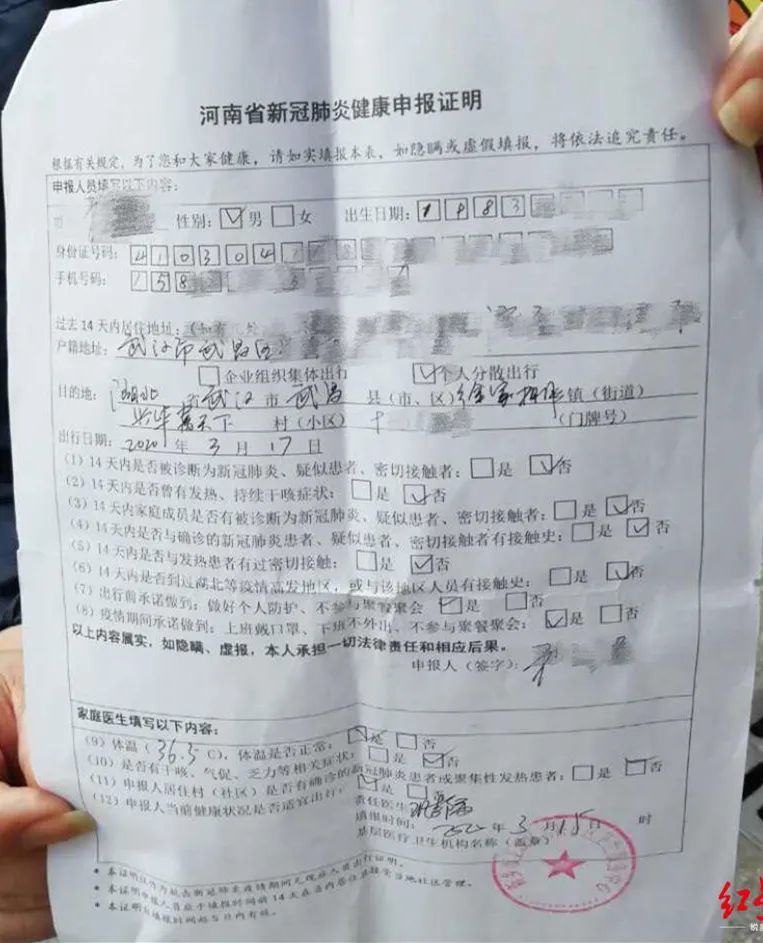 河南省新冠肺炎健康申报证明
根据有关规定，为了您和大家健康，请如实填报本表，如隐瞒或虚假填报，将依法追究责任。
申报人员填写以下内容：
性别：☑男 □女 出生日期：1983
身份证号码：410304
手机号码：158
过去14天内居住地址：
户籍地址：武汉市武昌区
□企业组织集体出行 ☑个人分散出行
目的地：湖北 省 武汉 市 武昌 县（市、区）徐家棚 镇（街道）
天下 村（小区） （门牌号）
出行日期：2020 年 3 月 17 日
（1）14天内是否被诊断为新冠肺炎、疑似患者、密切接触者：□是 ☑否
（2）14天内是否曾有发热、持续干咳症状：□是 ☑否
（3）14天内家庭成员是否有被诊断为新冠肺炎、疑似患者、密切接触者：□是 ☑否
（4）14天内是否与确诊的新冠肺炎患者、疑似患者、密切接触者有接触史：□是 ☑否
（5）14天内是否与发热患者有过密切接触：□是 ☑否
（6）14天内是否到过湖北等疫情高发地区，或与该地区人员有接触史：□是 ☑否
（7）出行前承诺做到：做好个人防护、不参与聚餐聚会 ☑是 □否
（8）疫情期间承诺做到：上班戴口罩、下班不外出、不参与聚餐聚会：☑是 □否
以上内容属实，如隐瞒、虚报，本人承担一切法律责任和相应后果。
申报人（签字）：
家庭医生填写以下内容：
（9）体温（36.5 C），体温是否正常：☑是 □否
（10）是否有干咳、气促、乏力等相关症状：□是 ☑否
（11）申报人居住村（社区）是否有确诊的新冠肺炎患者或聚集性发热患者：□是 ☑否
（12）申报人当前健康状况是否适宜出行：☑是 □否
责任医生：
填报时间：2020 年 3 月 15 日 时
基层医疗卫生机构名称（盖章）
* 本证明仅作为抗击新冠肺炎疫情期间无现症人员出行证明。
* 本证明申报人员应于填报时间前14天在县内居住并接受当地社区管理。
* 本证明自填报时间起5日内有效。